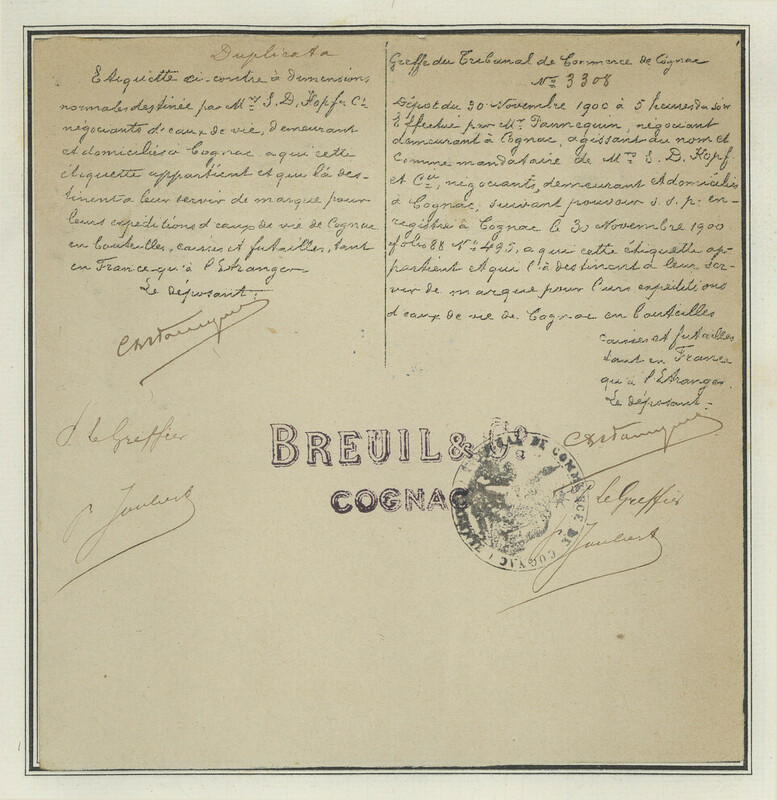 Duplicata
Etiquette ci-contre à dimensions
normales destinée par Mrs. J. D. Kopf & Cie
négociants d'eaux de vie, demeurant
et domiciliés à Cognac, a qui cette
étiquette appartient et qui là des-
tinent a leur servir de marque pour
leurs expéditions d'eaux de vie de Cognac
en bouteilles, caisses et futailles, tant
en France qu'à l'Etranger
Le déposant:
P. Le Greffier
Joubert
Greffe du Tribunal de Commerce de Cognac
No 3308
Dépôt du 30 Novembre 1900 à 5 heures du soir
Effectué par Mr. Pannequin, négociant
demeurant à Cognac, agissant au nom et
comme mandataire de Mrs. J. D. Kopf
et Cie, négociants, demeurant et domiciliés
à Cognac, suivant pouvoir s.s.p. en-
registré à Cognac le 30 Novembre 1900
folio 88 No 495, a qui cette étiquette ap-
partient et qui l'à destinent à leur ser-
vir de marque pour leurs expéditions
d'eaux de vie de Cognac en bouteilles
caisses et futailles
tant en France
qu'à l'Etranger.
Le déposant:
BREUIL & Co.
COGNAC
TRIBUNAL DE COMMERCE DE COGNAC
P. Le Greffier
Joubert